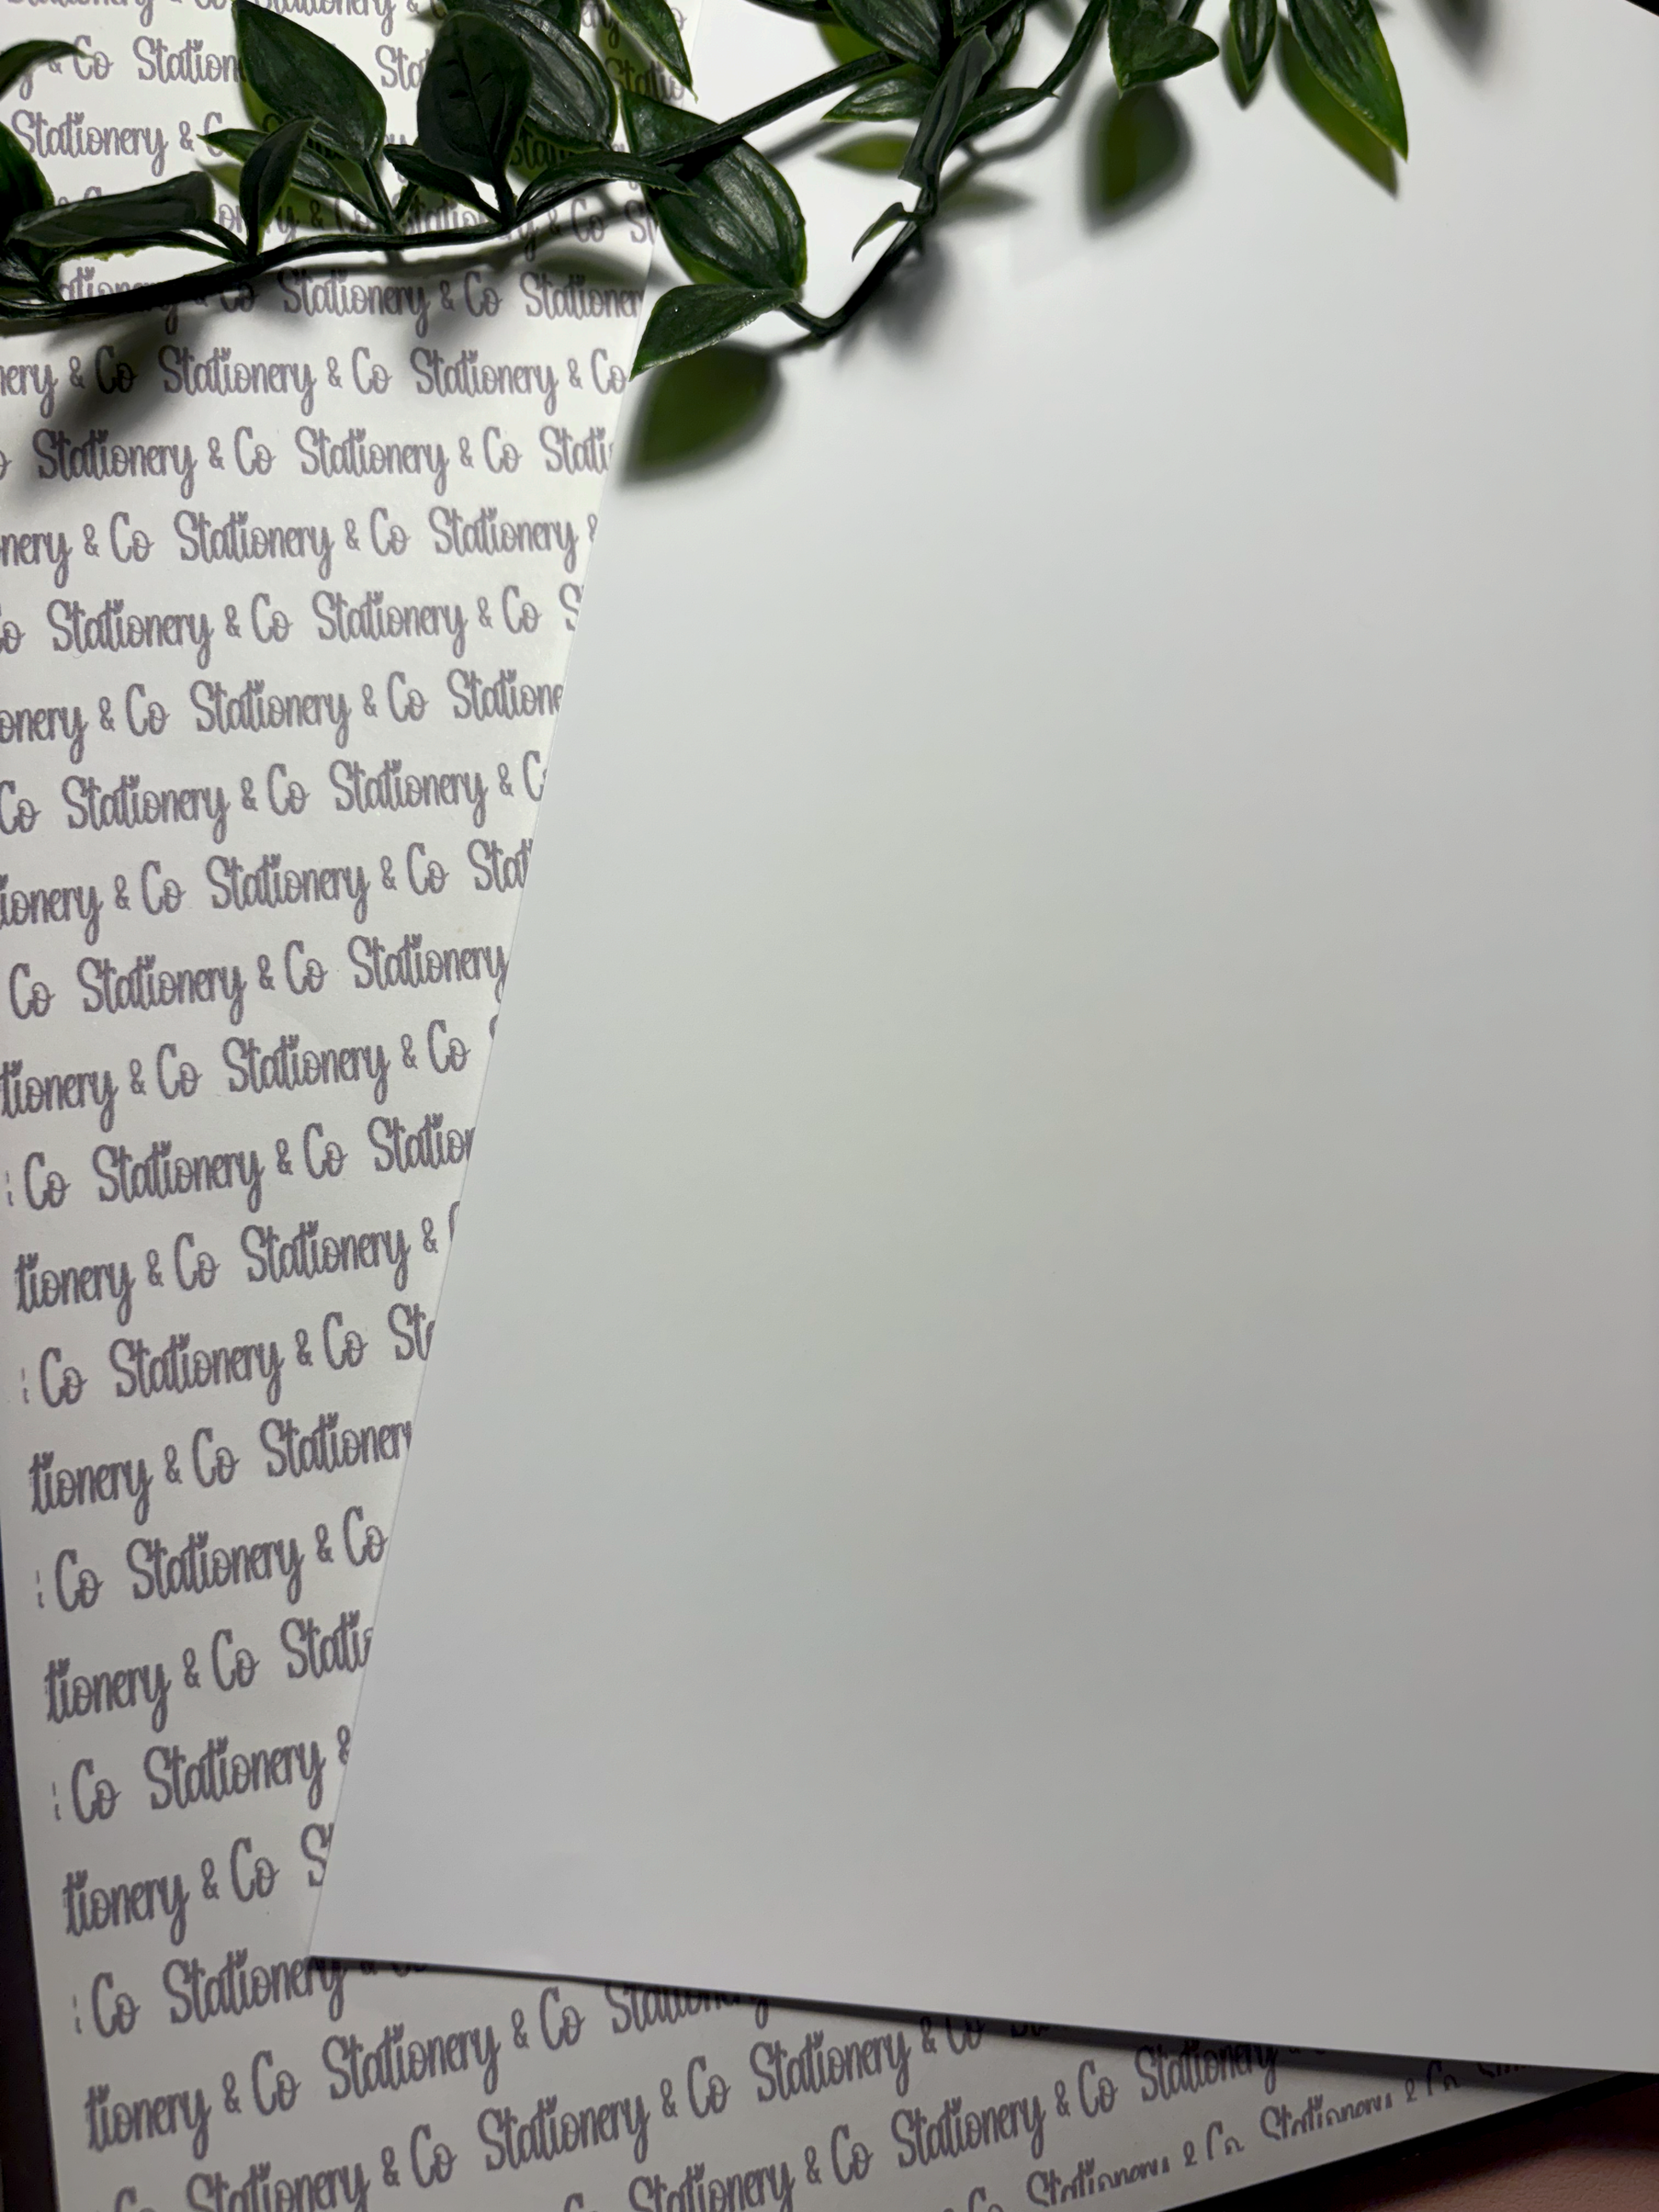 Stationery &
& Co Station
Stationery &
& Co Stationery & Co
Co Stationery & Co Stationer
nery & Co Stationery & Co Stationery & Co
Stationery & Co Stationery & Co Stati
nery & Co Stationery & Co Stationery &
Co Stationery & Co Stationery & Co S
onery & Co Stationery & Co Statione
Co Stationery & Co Stationery & C
ionery & Co Stationery & Co Stat
Co Stationery & Co Stationery
tionery & Co Stationery & Co
Co Stationery & Co Station
tionery & Co Stationery &
Co Stationery & Co St
tionery & Co Stationery
Co Stationery & Co
tionery & Co Stati
Co Stationery &
tionery & Co S
Co Stationery
tionery & Co Stationery & Co Stationery
Co Stationery & Co Stationery & Co Stationery & Co
Stationery & Co Stationery & Co Stationery
Stationery & Co Stationery